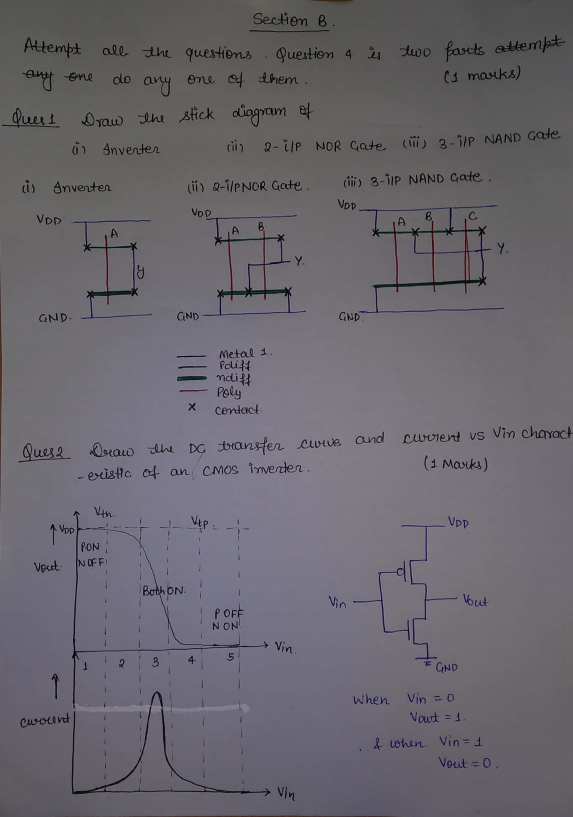 Section B.
Attempt all the questions. Question 4 is two parts attempt
any one do any one of them. (1 marks)
Ques1 Draw the stick diagram of
(i) Inverter (ii) 2-i/P NOR Gate (iii) 3-i/P NAND Gate
(i) Inverter (ii) 2-i/P NOR Gate. (iii) 3-i/P NAND Gate.
VDD VDD VDD
A A B A B C
y Y. Y.
GND. GND GND
Metal 1.
Pdiff
ndiff
Poly
contact.
Ques2 Draw the DC transfer curve and current vs Vin charact
-eristic of an CMOS inverter. (1 Marks)
Vtn. Vtp.
VDD
Vout.
PON
NOFF
Both ON.
P OFF
N ON
Vin.
1 2 3 4 5
current
Vin
VDD
Vin Vout
GND
When Vin = 0
Vout = 1.
& when Vin = 1
Vout = 0.